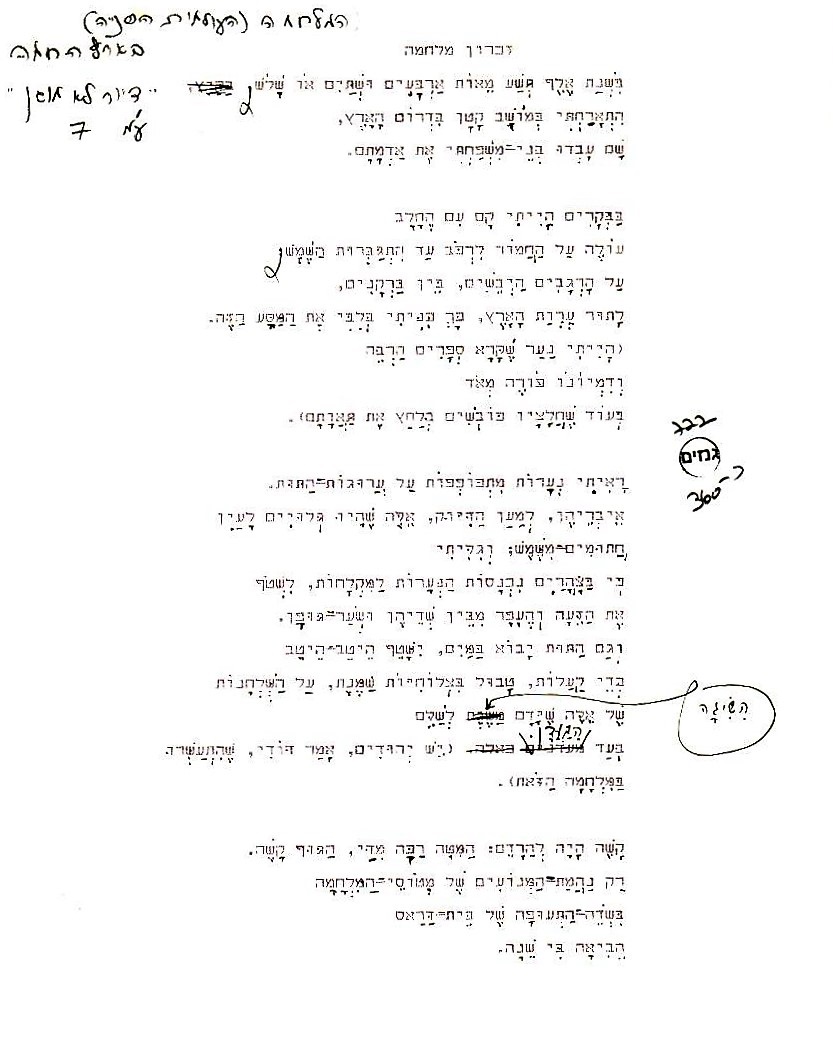 המלחמה (העולמית השנייה)
בארץ החמה
"דיור לא מוגן"
עמ' 7
זכרון מלחמה
בִּשְׁנַת אֶלֶף תְּשַׁע מֵאוֹת אַרְבָּעִים וּשְׁתַּיִם אוֹ שָׁלֹשׁ
הִתְאָרַחְתִּי בְּמוֹשָׁב קָטָן בִּדְרוֹם הָאָרֶץ,
שָׁם עָבְדוּ בְּנֵי-מִשְׁפַּחְתִּי אֶת אַדְמָתָם.
בַּבְּקָרִים הָיִיתִי קָם עִם הֶחָלָב
עוֹלֶה עַל הַחֲמוֹר לִרְכֹּב עַד הִתְגַּבְּרוּת הַשֶּׁמֶשׁ
עַל הָרְגָבִים הַיְבֵשִׁים, בֵּין בַּרְקָנִים,
לָתוּר עֶרְוַת הָאָרֶץ, כָּךְ כִּנִּיתִי בְּלִבִּי אֶת הַמַּסָּע הַזֶּה.
(הָיִיתִי נַעַר שֶׁקָּרָא סְפָרִים הַרְבֵּה
וְדִמְיוֹנוֹ פּוֹרֶה מְאֹד
בְּעוֹד שֶׁחֲלָצָיו כּוֹבְשִׁים בְּלַחַץ אֶת תַּאֲוָתָם).
רָאִיתִי נְעָרוֹת מִתְכּוֹפְפוֹת עַל עֲרוּגוֹת-הַתּוּת.
אֵיבְרֵיהֶן, לְמַעַן הַדִּיּוּק, אֵלֶּה שֶׁהָיוּ גְּלוּיִים לָעַיִן
חֲתוּמִים-מִשֶּׁמֶשׁ; וְגִלִּיתִי
כִּי בַּצָּהֳרַיִם נִכְנָסוֹת הַנְּעָרוֹת לַמִּקְלָחוֹת, לִשְׁטֹף
אֶת הַזֵּעָה וְהֶעָפָר מִבֵּין שְׁדֵיהֶן וּשְׂעַר-גּוּפָן.
וְגַם הַתּוּת יָבוֹא בַּמַּיִם, יִשָּׁטֵף הֵיטֵב-הֵיטֵב
כְּדֵי לַעֲלוֹת, טָבוּל בִּצְלוֹחִיּוֹת שַׁמֶּנֶת, עַל הַשֻּׁלְחָנוֹת
שֶׁל אֵלֶּה שֶׁיָּדָם מַשֶּׂגֶת לְשַׁלֵּם
הִשִּׂיגָה
בְּעַד מַעֲדַנִּים כָּאֵלֶּה. (יֵשׁ יְהוּדִים, אָמַר דּוֹדִי, שֶׁהִתְעַשְּׁרוּ
בַּמִּלְחָמָה הַזֹּאת).
קָשֶׁה הָיָה לְהֵרָדֵם: הַמִּטָּה רַכָּה מִדַּי, הַגּוּף קָשֶׁה.
רַק נַהֲמַת-הַמְּנוֹעִים שֶׁל מְטוֹסֵי-הַמִּלְחָמָה
בִּשְׂדֵה-הַתְּעוּפָה שֶׁל בֵּית-דָּרָאס
הֵבִיאָה בִּי שֵׁנָה.
גנזים